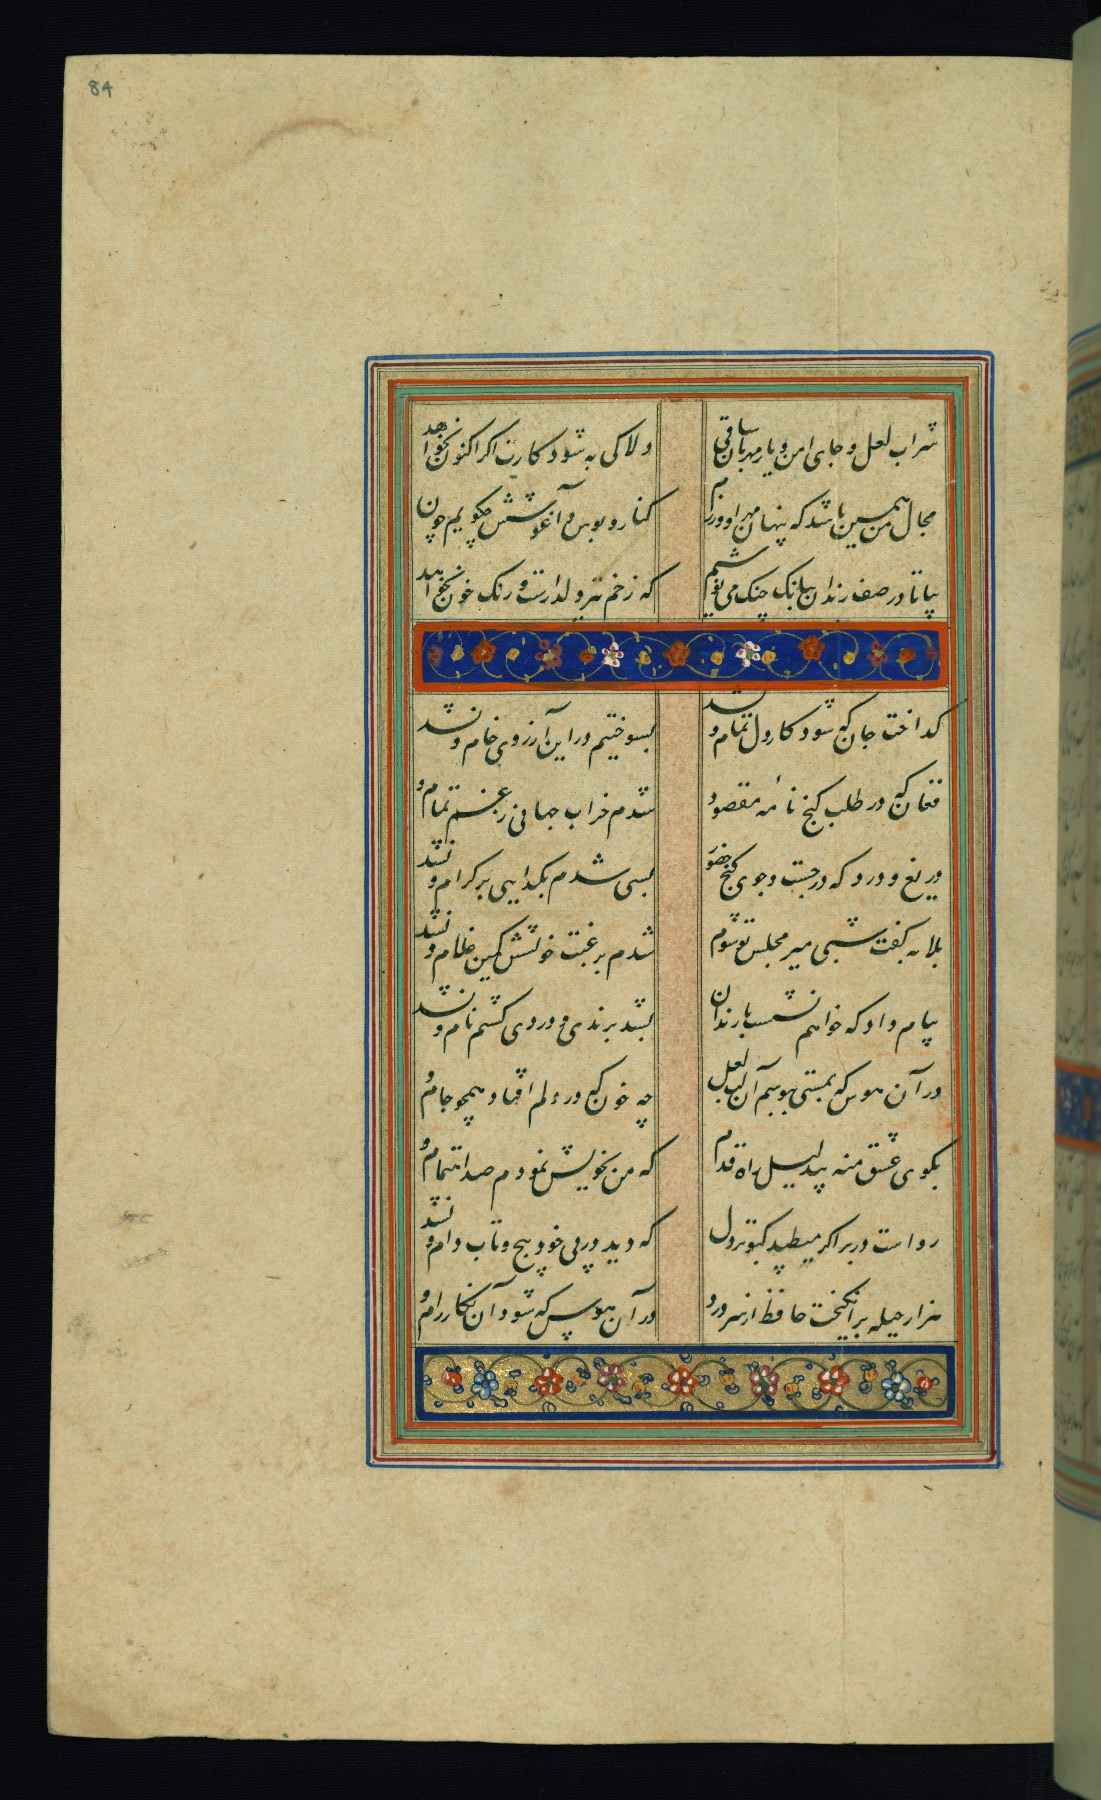 84
شراب لعل و جای امن و یار مهربان ساقی
دلا کی به شود کارت اکر اکنون نخواهد
مجال من همین باشد که پنهان مهر او ورزم
کنار و بوس و آغوشش چکویم چون
بیا تا در صف رندان ببانک چنک می نوشیم
که زخم تیر دلدارت و رنک خون نخواهد
کداخت جان که شود کار دل تمام و نشد
بسوختیم درین آرزوی خام و نشد
فغان که در طلب کنج نامه مقصود
شدم خراب جهانی ز غم تمام و
دریغ و درد که در جست و جوی کنج حضور
بسی شدم بکدایی بر کرام و نشد
بلابه کفت شبی میر مجلس تو شوم
شدم برغبت خویشش کمین غلام و نشد
پیام داد که خواهم نشست با رندان
بشد برندی و دردی کشیم نام و نشد
در آن هوس که بمستی ببوسم آن لب لعل
چه خون که در دلم افتاد همچو جام و
بکوی عشق منه بیدلیل راه قدم
که من بخویش نمودم صد اهتمام و
رواست در بر اکر میطپد کبوتر دل
که دید در پی خود پیچ و تاب دام و نشد
هزار حیله برانکیخت حافظ از سر درد
در آن هوس که شود آن نکار رام و